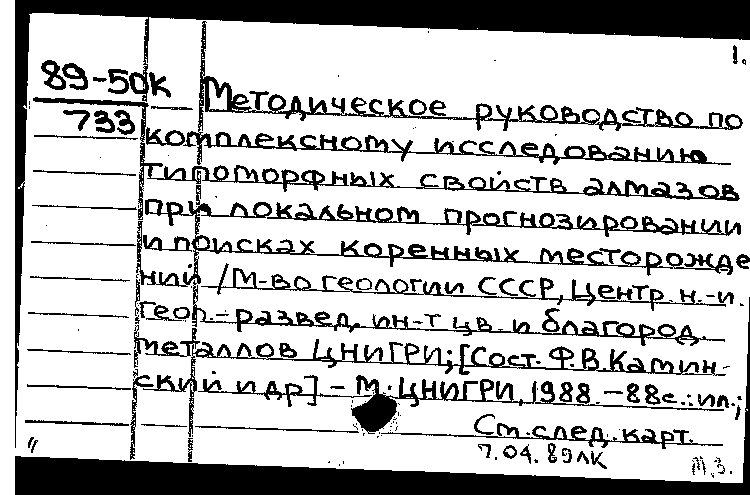 1.
89-50К Методическое руководство по
733 комплексному исследованию
типоморфных свойств алмазов
при локальном прогнозировании
и поисках коренных месторожде
ний / М-во геологии СССР, Центр. н.-и.
геол.-развед. ин-т цв. и благород.
металлов ЦНИГРИ; [Сост. Ф.В. Камин-
ский и др] - М.: ЦНИГРИ, 1988. - 88с.: ил.;
См. след. карт.
7.04.89ЛК
М.З.